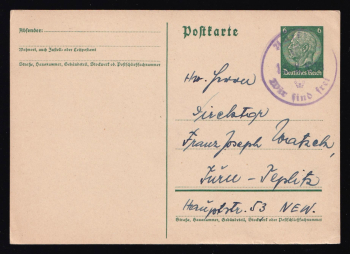 Absender:
Wohnort, auch Zustell- oder Leitpostamt
Straße, Hausnummer, Gebäudeteil, Stockwerk od. Postschließfachnummer
Postkarte
6 6
Deutsches Reich
Wir sind frei
Direktor
Franz Joseph
Turn-Teplitz
Hauptstr. 53 NEW.
Straße, Hausnummer, Gebäudeteil, Stockwerk oder Postschließfachnummer